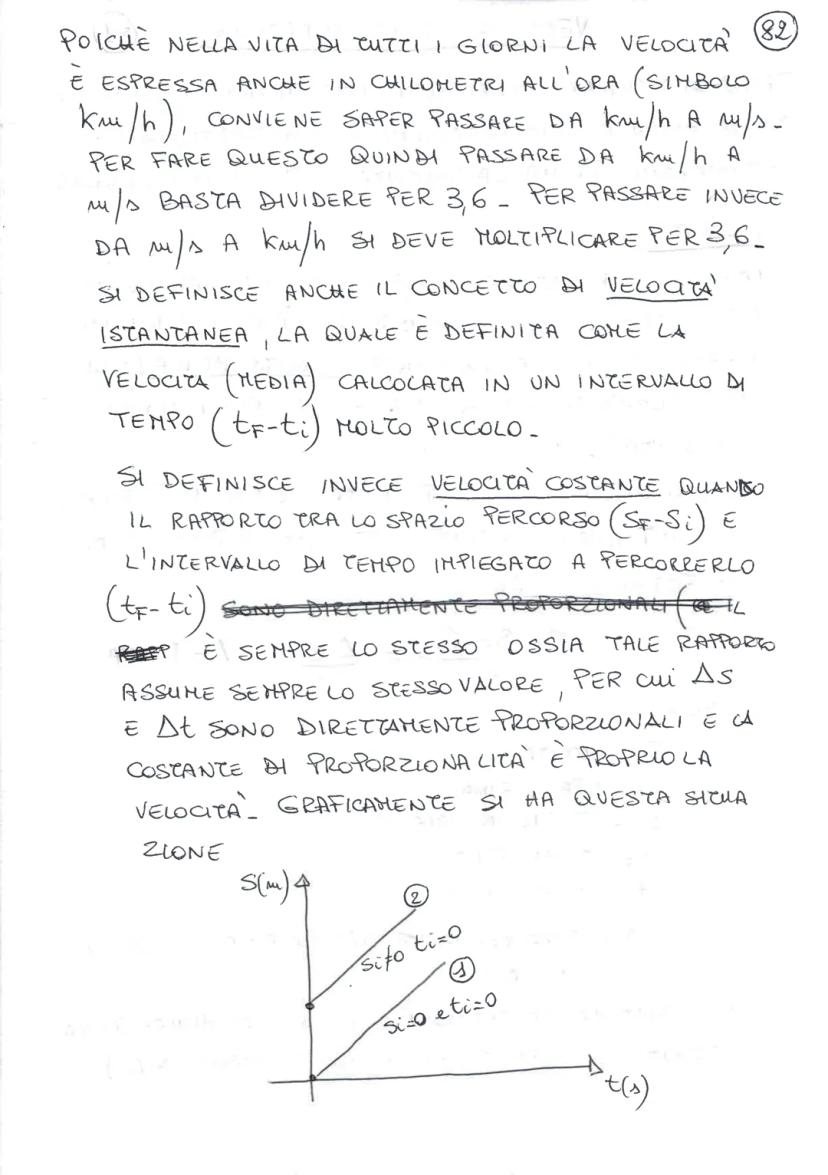 82
POICHÈ NELLA VITA DI TUTTI I GIORNI LA VELOCITÀ
È ESPRESSA ANCHE IN CHILOMETRI ALL'ORA (SIMBOLO
km/h), CONVIENE SAPER PASSARE DA km/h A m/s.
PER FARE QUESTO QUINDI PASSARE DA km/h A
m/s BASTA DIVIDERE PER 3,6_ PER PASSARE INVECE
DA m/s A km/h SI DEVE MOLTIPLICARE PER 3,6_
SI DEFINISCE ANCHE IL CONCETTO DI VELOCITÀ
ISTANTANEA, LA QUALE È DEFINITA COME LA
VELOCITA (MEDIA) CALCOLATA IN UN INTERVALLO DI
TEMPO (tF-ti) MOLTO PICCOLO_
SI DEFINISCE INVECE VELOCITÀ COSTANTE QUANDO
IL RAPPORTO TRA LO SPAZIO PERCORSO (SF-Si) E
L'INTERVALLO DI TEMPO IMPIEGATO A PERCORRERLO
(tF-ti) SONO DIRETTAMENTE PROPORZIONALI ( IL
È SEMPRE LO STESSO OSSIA TALE RAPPORTO
ASSUME SEMPRE LO STESSO VALORE, PER cui ΔS
E Δt SONO DIRETTAMENTE PROPORZIONALI E LA
COSTANTE DI PROPORZIONALITÀ È PROPRIO LA
VELOCITÀ_ GRAFICAMENTE SI HA QUESTA SITUA
ZIONE
S(m)
2
si≠0 ti=0
1
si=0 e ti=0
t(s)